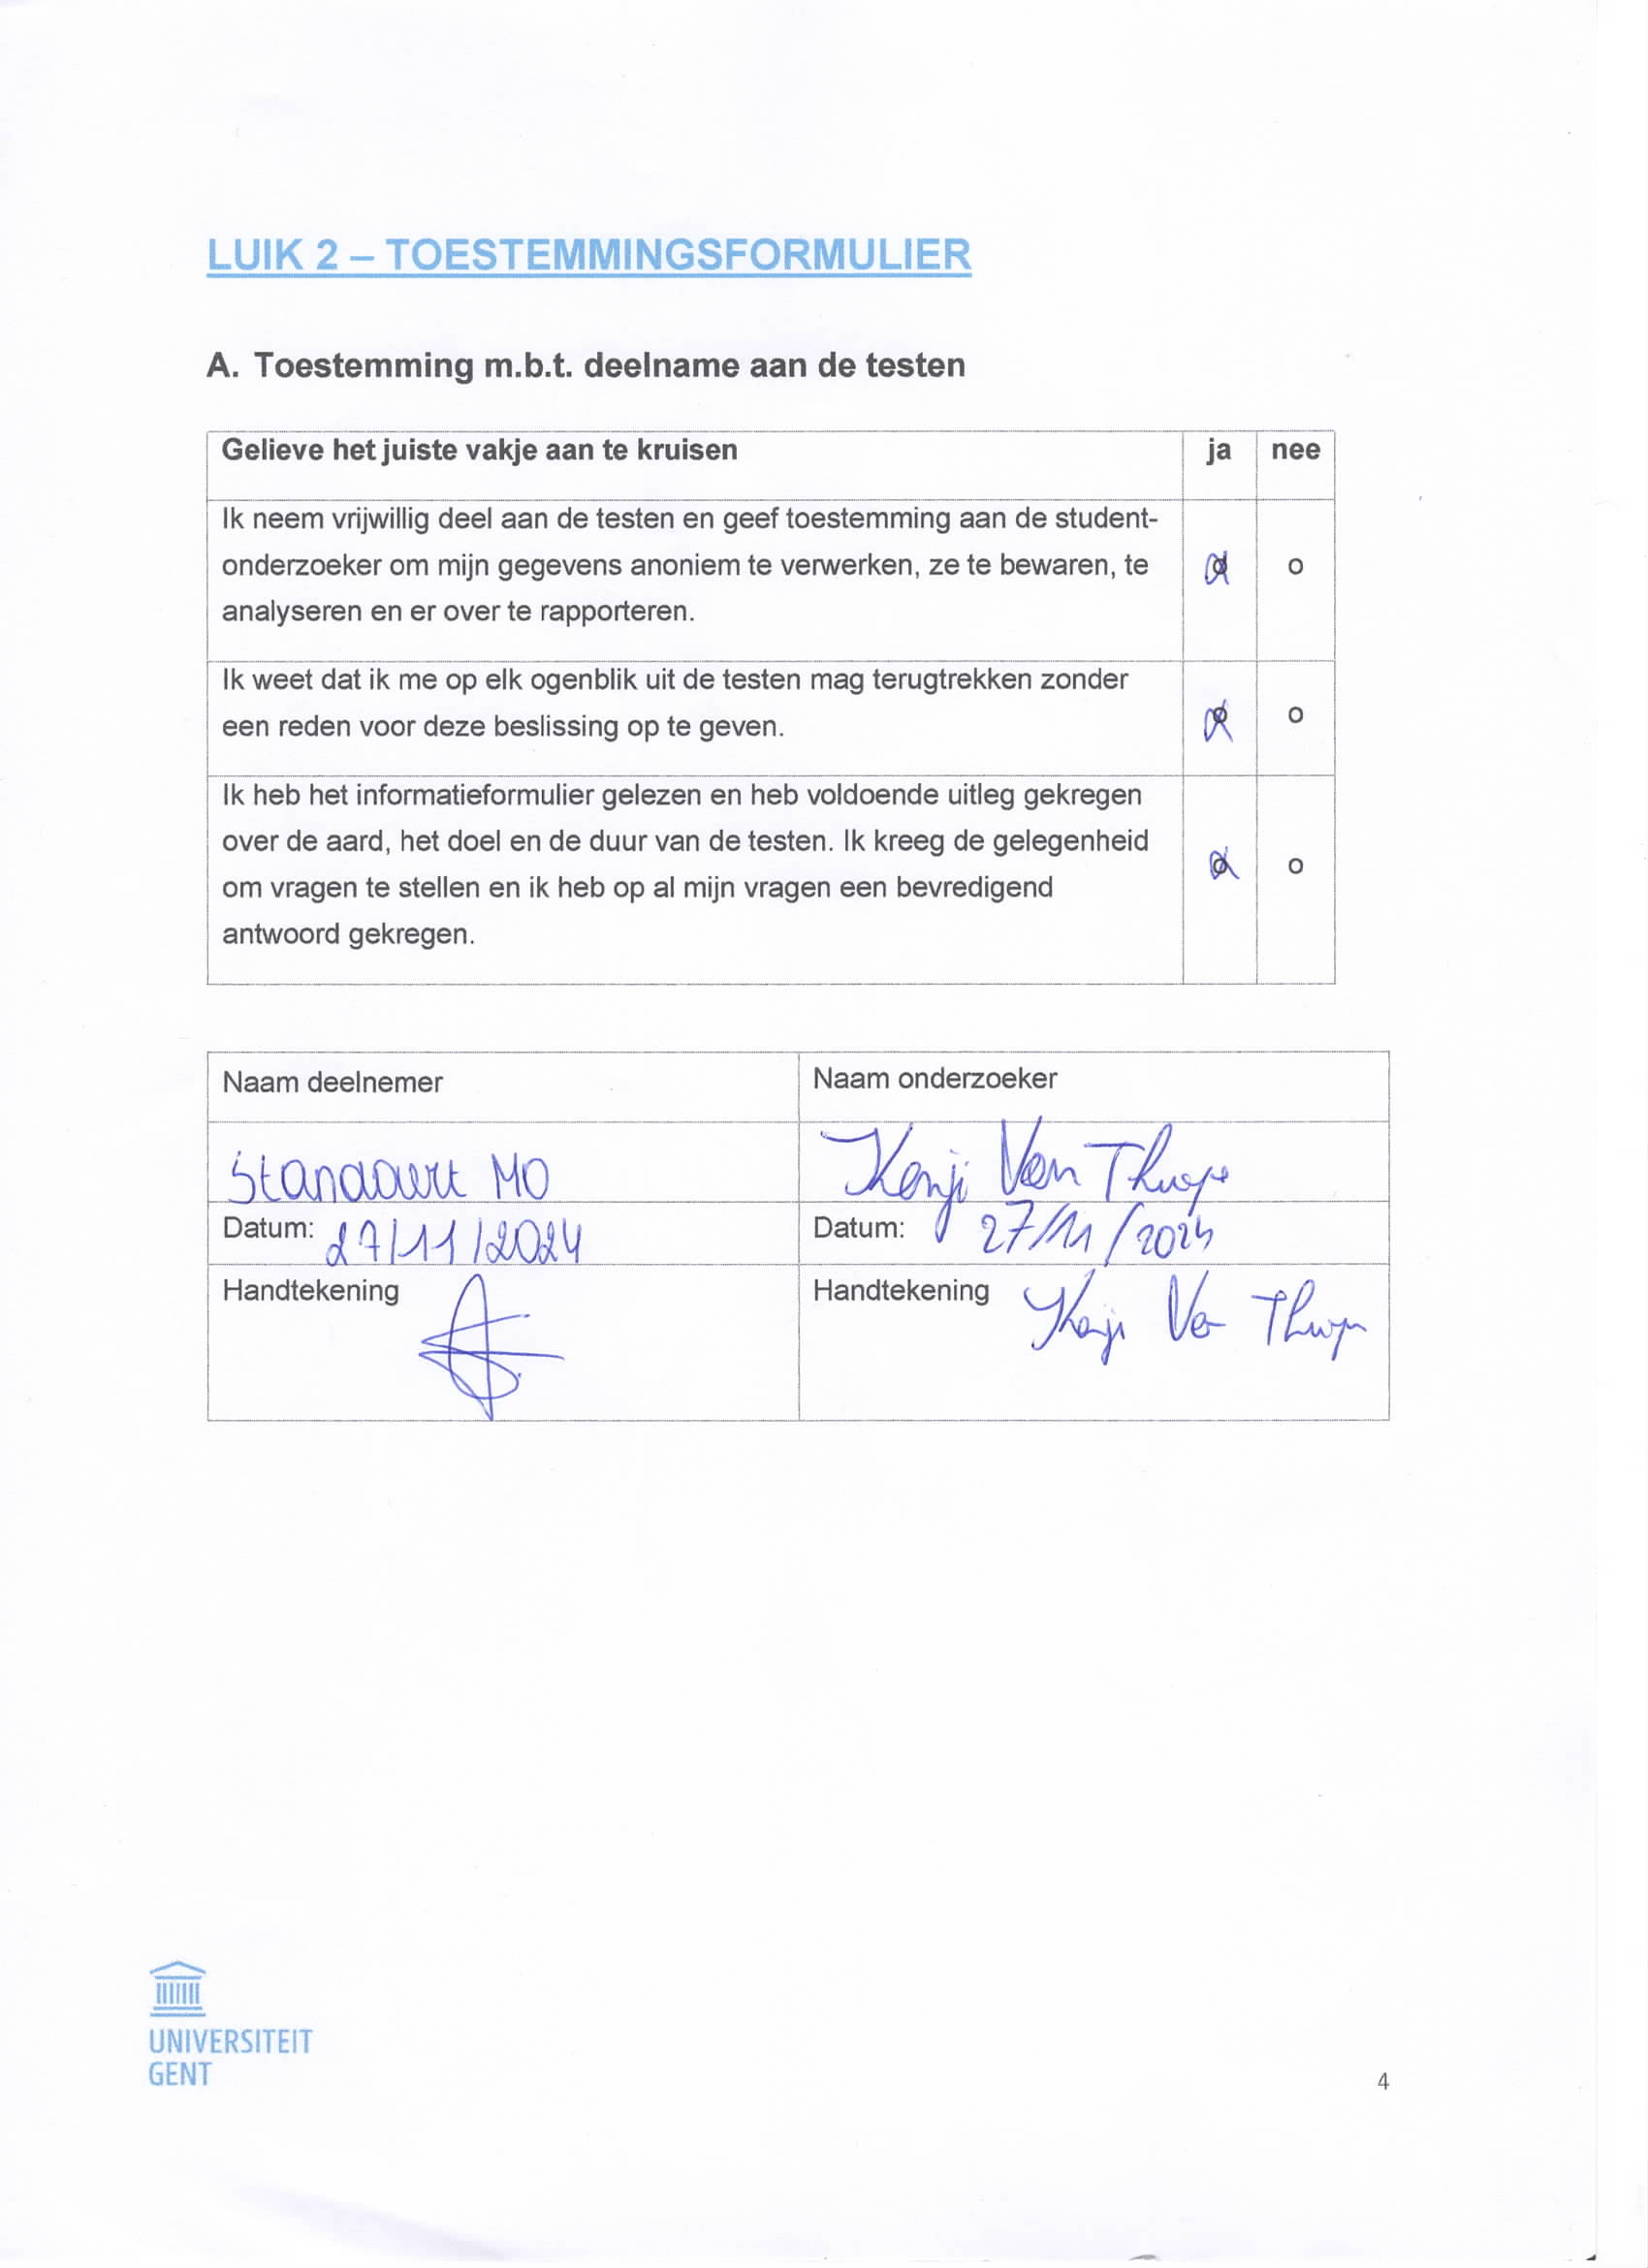 LUIK 2 – TOESTEMMINGSFORMULIER
A. Toestemming m.b.t. deelname aan de testen
Gelieve het juiste vakje aan te kruisen ja nee
Ik neem vrijwillig deel aan de testen en geef toestemming aan de student-
onderzoeker om mijn gegevens anoniem te verwerken, ze te bewaren, te o
analyseren en er over te rapporteren.
Ik weet dat ik me op elk ogenblik uit de testen mag terugtrekken zonder
een reden voor deze beslissing op te geven. o
Ik heb het informatieformulier gelezen en heb voldoende uitleg gekregen
over de aard, het doel en de duur van de testen. Ik kreeg de gelegenheid
om vragen te stellen en ik heb op al mijn vragen een bevredigend o
antwoord gekregen.
Naam deelnemer Naam onderzoeker
Standaert MO Kenji Van
Datum: 27/11/2024 Datum: 27/11/2024
Handtekening Handtekening
UNIVERSITEIT
GENT
4